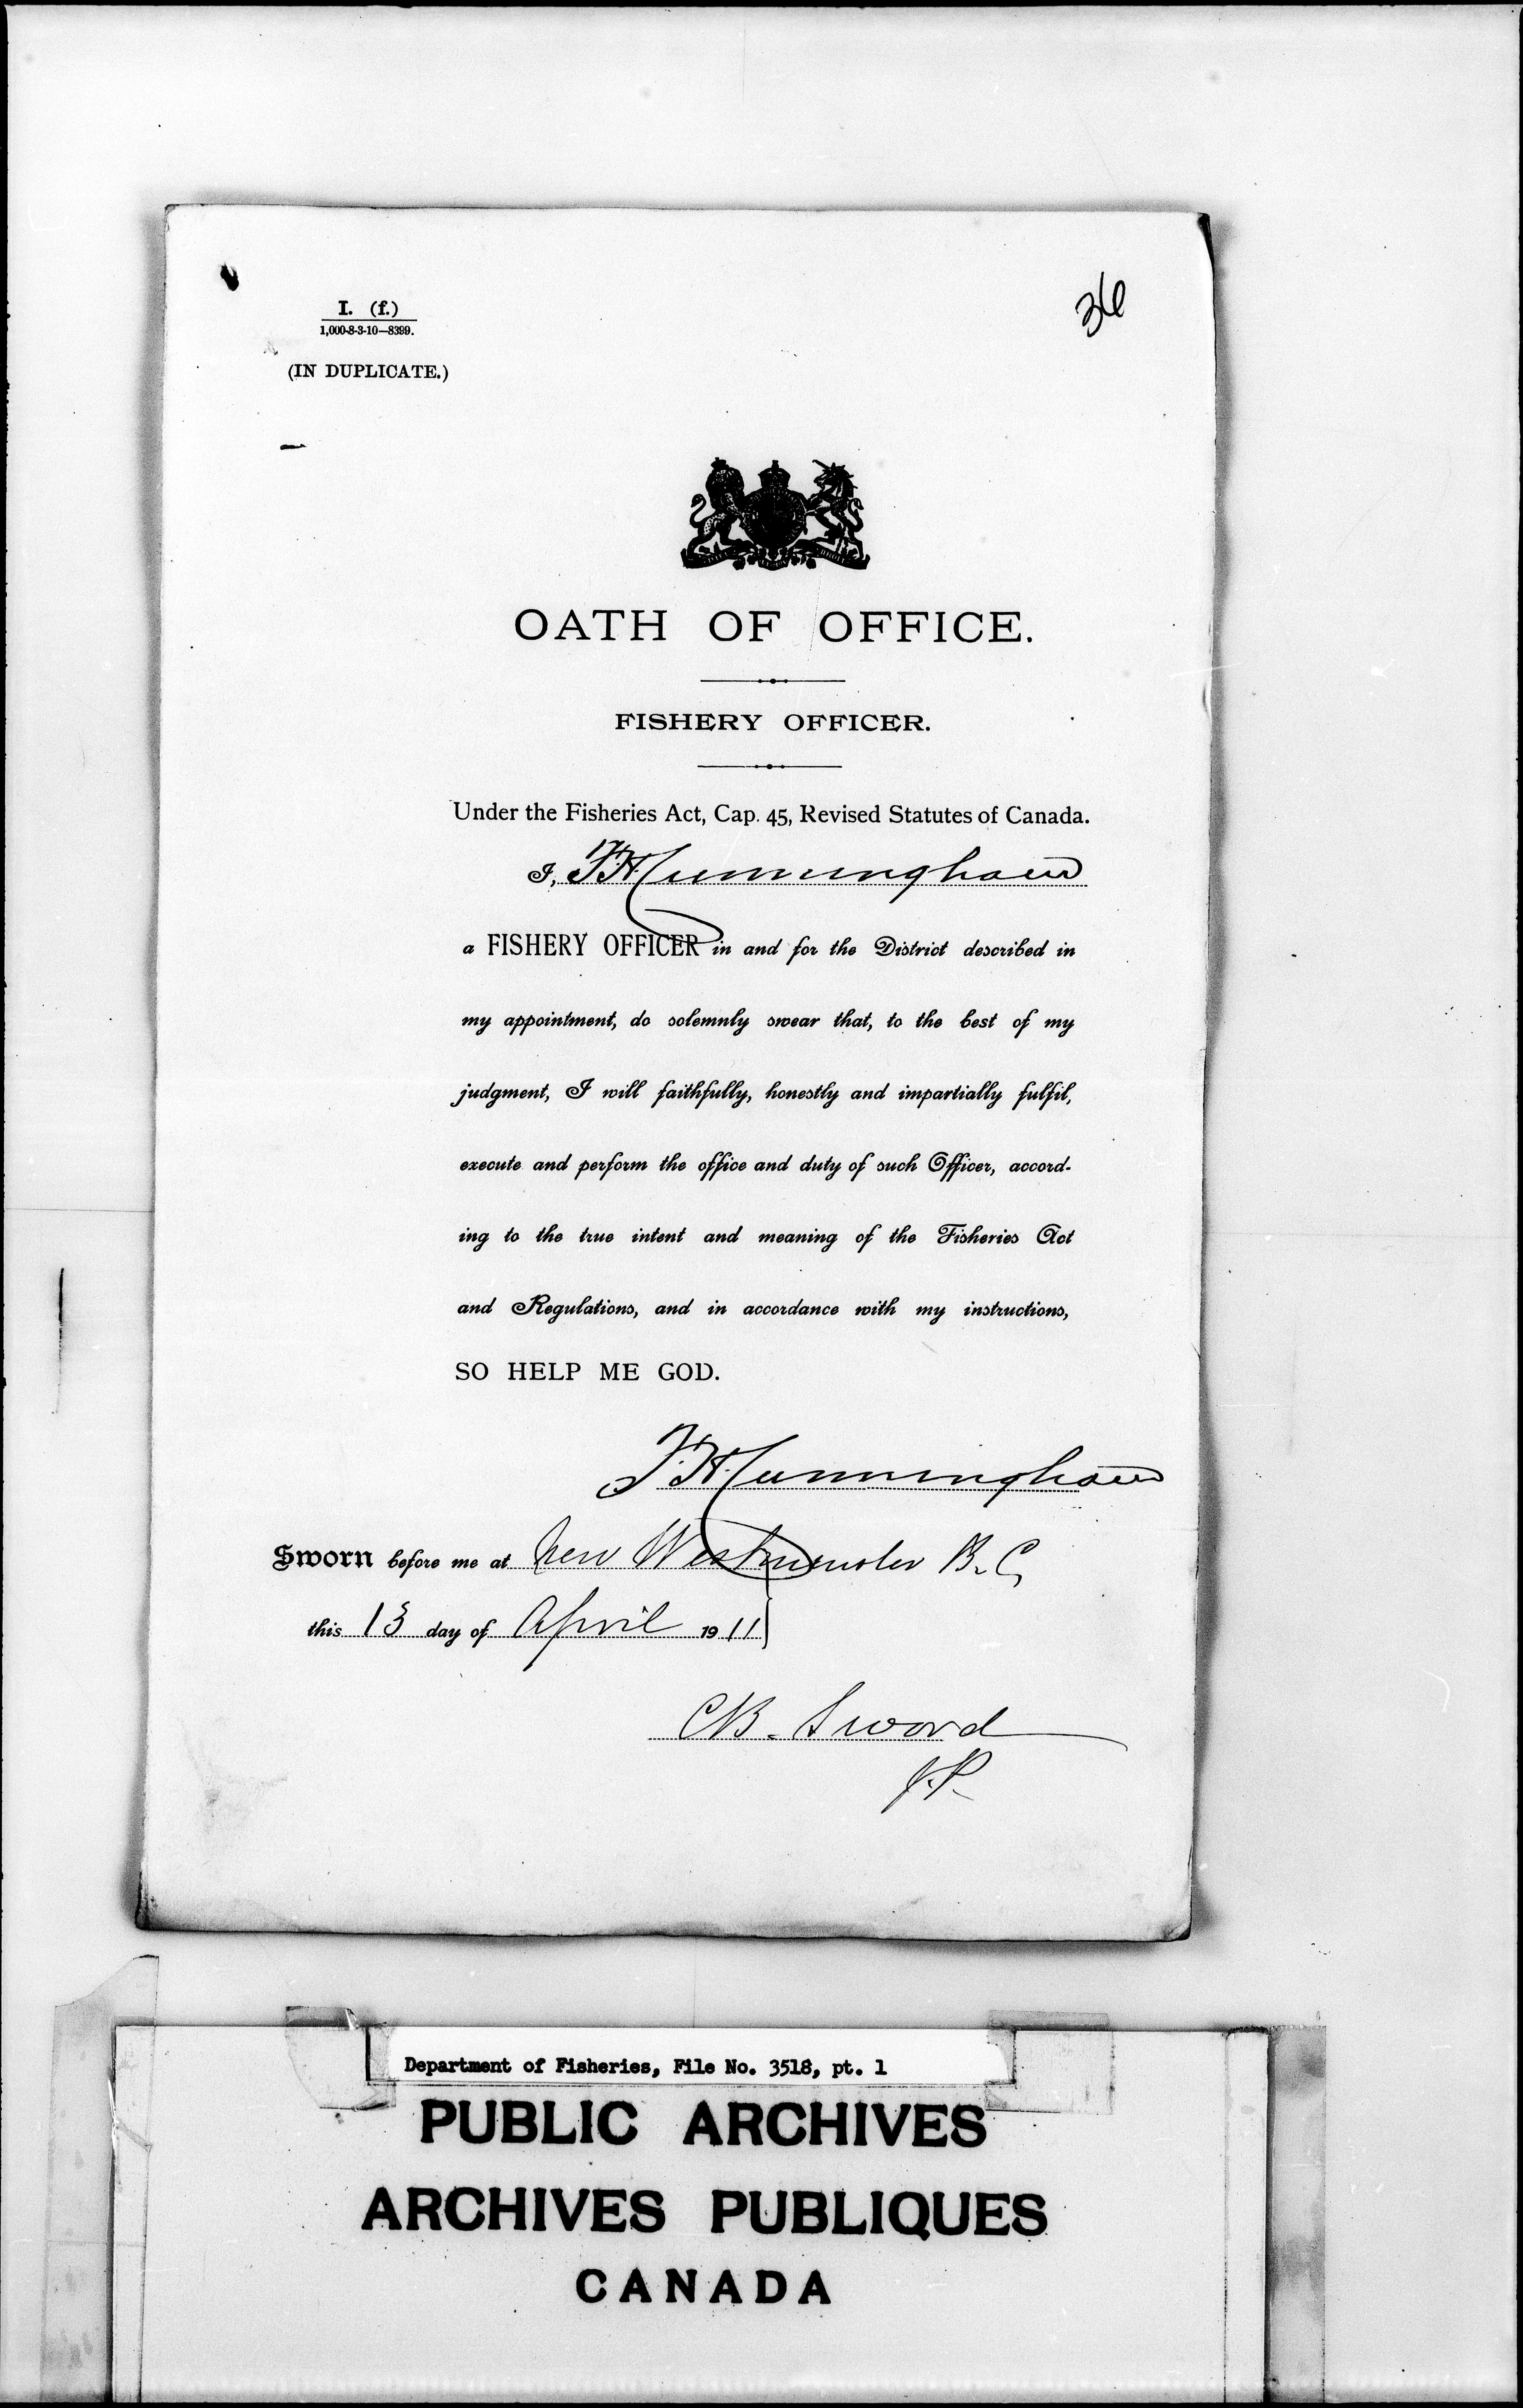 I. (f.)
1,000-8-3-10—8399.
(IN DUPLICATE.)
36
OATH OF OFFICE.
FISHERY OFFICER.
Under the Fisheries Act, Cap. 45, Revised Statutes of Canada.
I, F.H. Cunningham
a FISHERY OFFICER in and for the District described in
my appointment, do solemnly swear that, to the best of my
judgment, I will faithfully, honestly and impartially fulfil,
execute and perform the office and duty of such Officer, accord-
ing to the true intent and meaning of the Fisheries Act
and Regulations, and in accordance with my instructions,
SO HELP ME GOD.
F.H. Cunningham
Sworn before me at New Westminster B.C.
this 13 day of April 1911
C.B. Sword
J.P.
Department of Fisheries, File No. 3518, pt. 1
PUBLIC ARCHIVES
ARCHIVES PUBLIQUES
CANADA